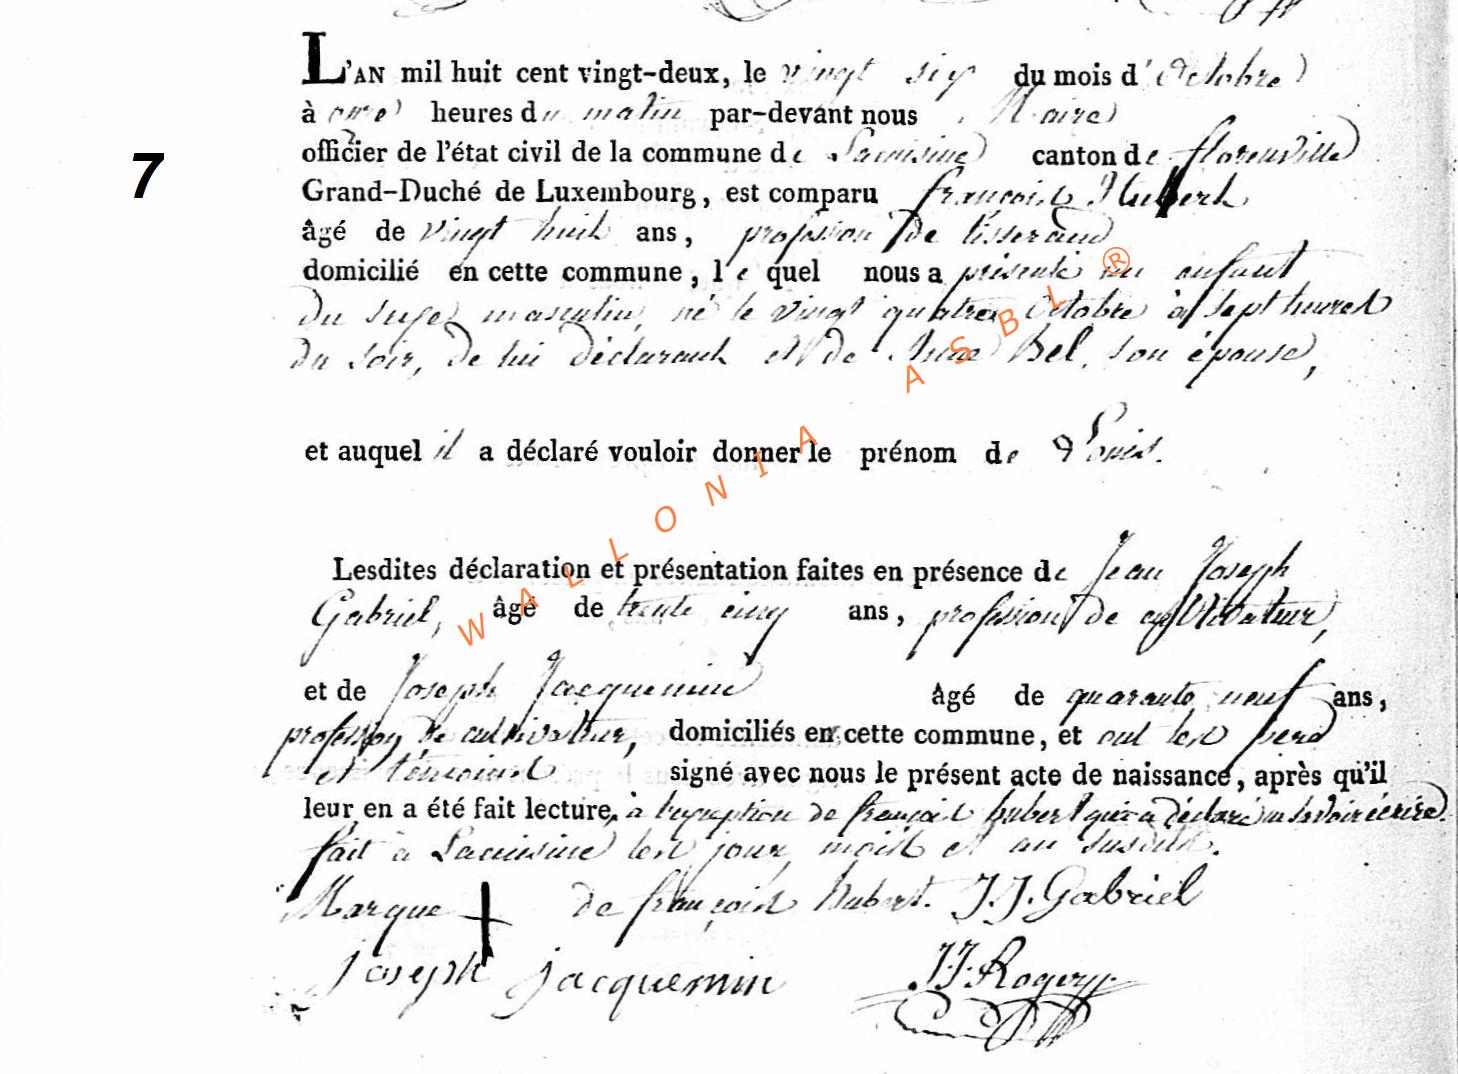 L'AN mil huit cent vingt-deux, le vingt six du mois d'Octobre
à onze heures du matin par-devant nous Maire
officier de l'état civil de la commune de Lacuisine canton de florenville
Grand-Duché de Luxembourg, est comparu françois Hubert
7
âgé de vingt huit ans, profession de tisserand
domicilié en cette commune, le quel nous a présenté un enfant
du sexe masculin, né le vingt quatre Octobre à sept heures
du soir, de lui déclarant et de Anne Bel, son épouse,
et auquel il a déclaré vouloir donner le prénom de Louis.
Lesdites déclaration et présentation faites en présence de Jean Joseph
Gabriel, âgé de trente cinq ans, profession de cultivateur,
et de Joseph Jacquemin âgé de quarante neuf ans,
profession de cultivateur, domiciliés en cette commune, et ont les père
et témoins signé avec nous le présent acte de naissance, après qu'il
leur en a été fait lecture, à l'exception de françois hubert qui a déclaré ne savoir écrire.
fait à Lacuisine les jour, mois et an susdits.
Marque + de françois hubert. J.J. Gabriel
joseph jacquemin J.J. Rogery
WALLONIA ASBL ®